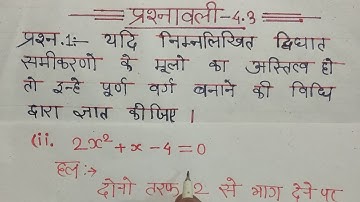 प्रश्नावली-4.3
प्रश्न.1:- यदि निम्नलिखित द्विघात
समीकरणो के मूलो का अस्तित्व हो
तो इन्हे पूर्ण वर्ग बनाने की विधि
द्वारा ज्ञात कीजिए ।
(ii. 2x²+x-4=0
हल:→
दोनो तरफ 2 से भाग देने पर